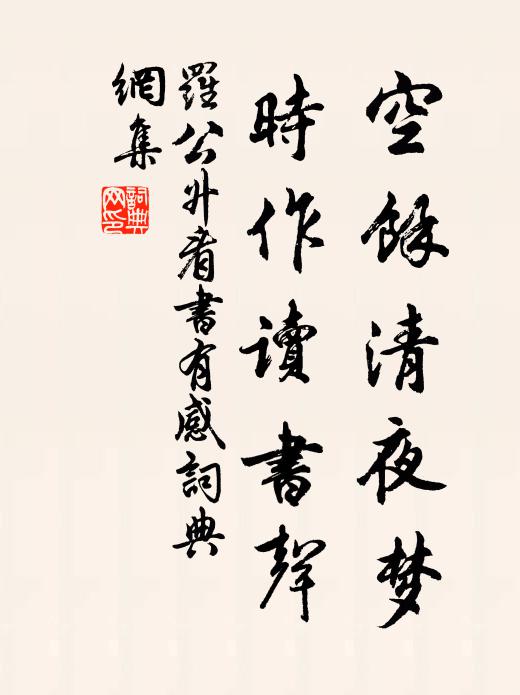 空餘清夜梦
時作讀書聲
羅公升看書有感詞典
網集
詞典
网印